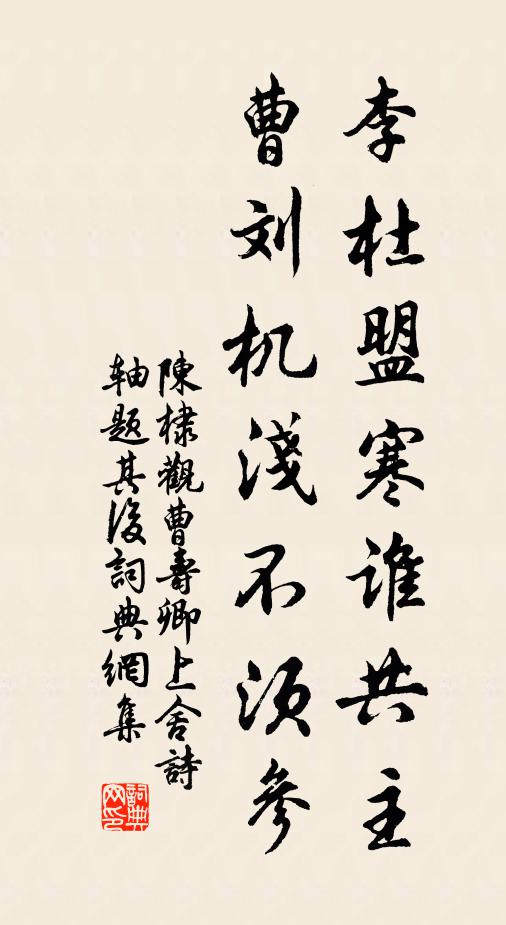 李杜盟寒谁共主
曹刘机淺不须參
陳棣觀曹壽卿上舍詩
轴题其後詞典網集
詞典网印